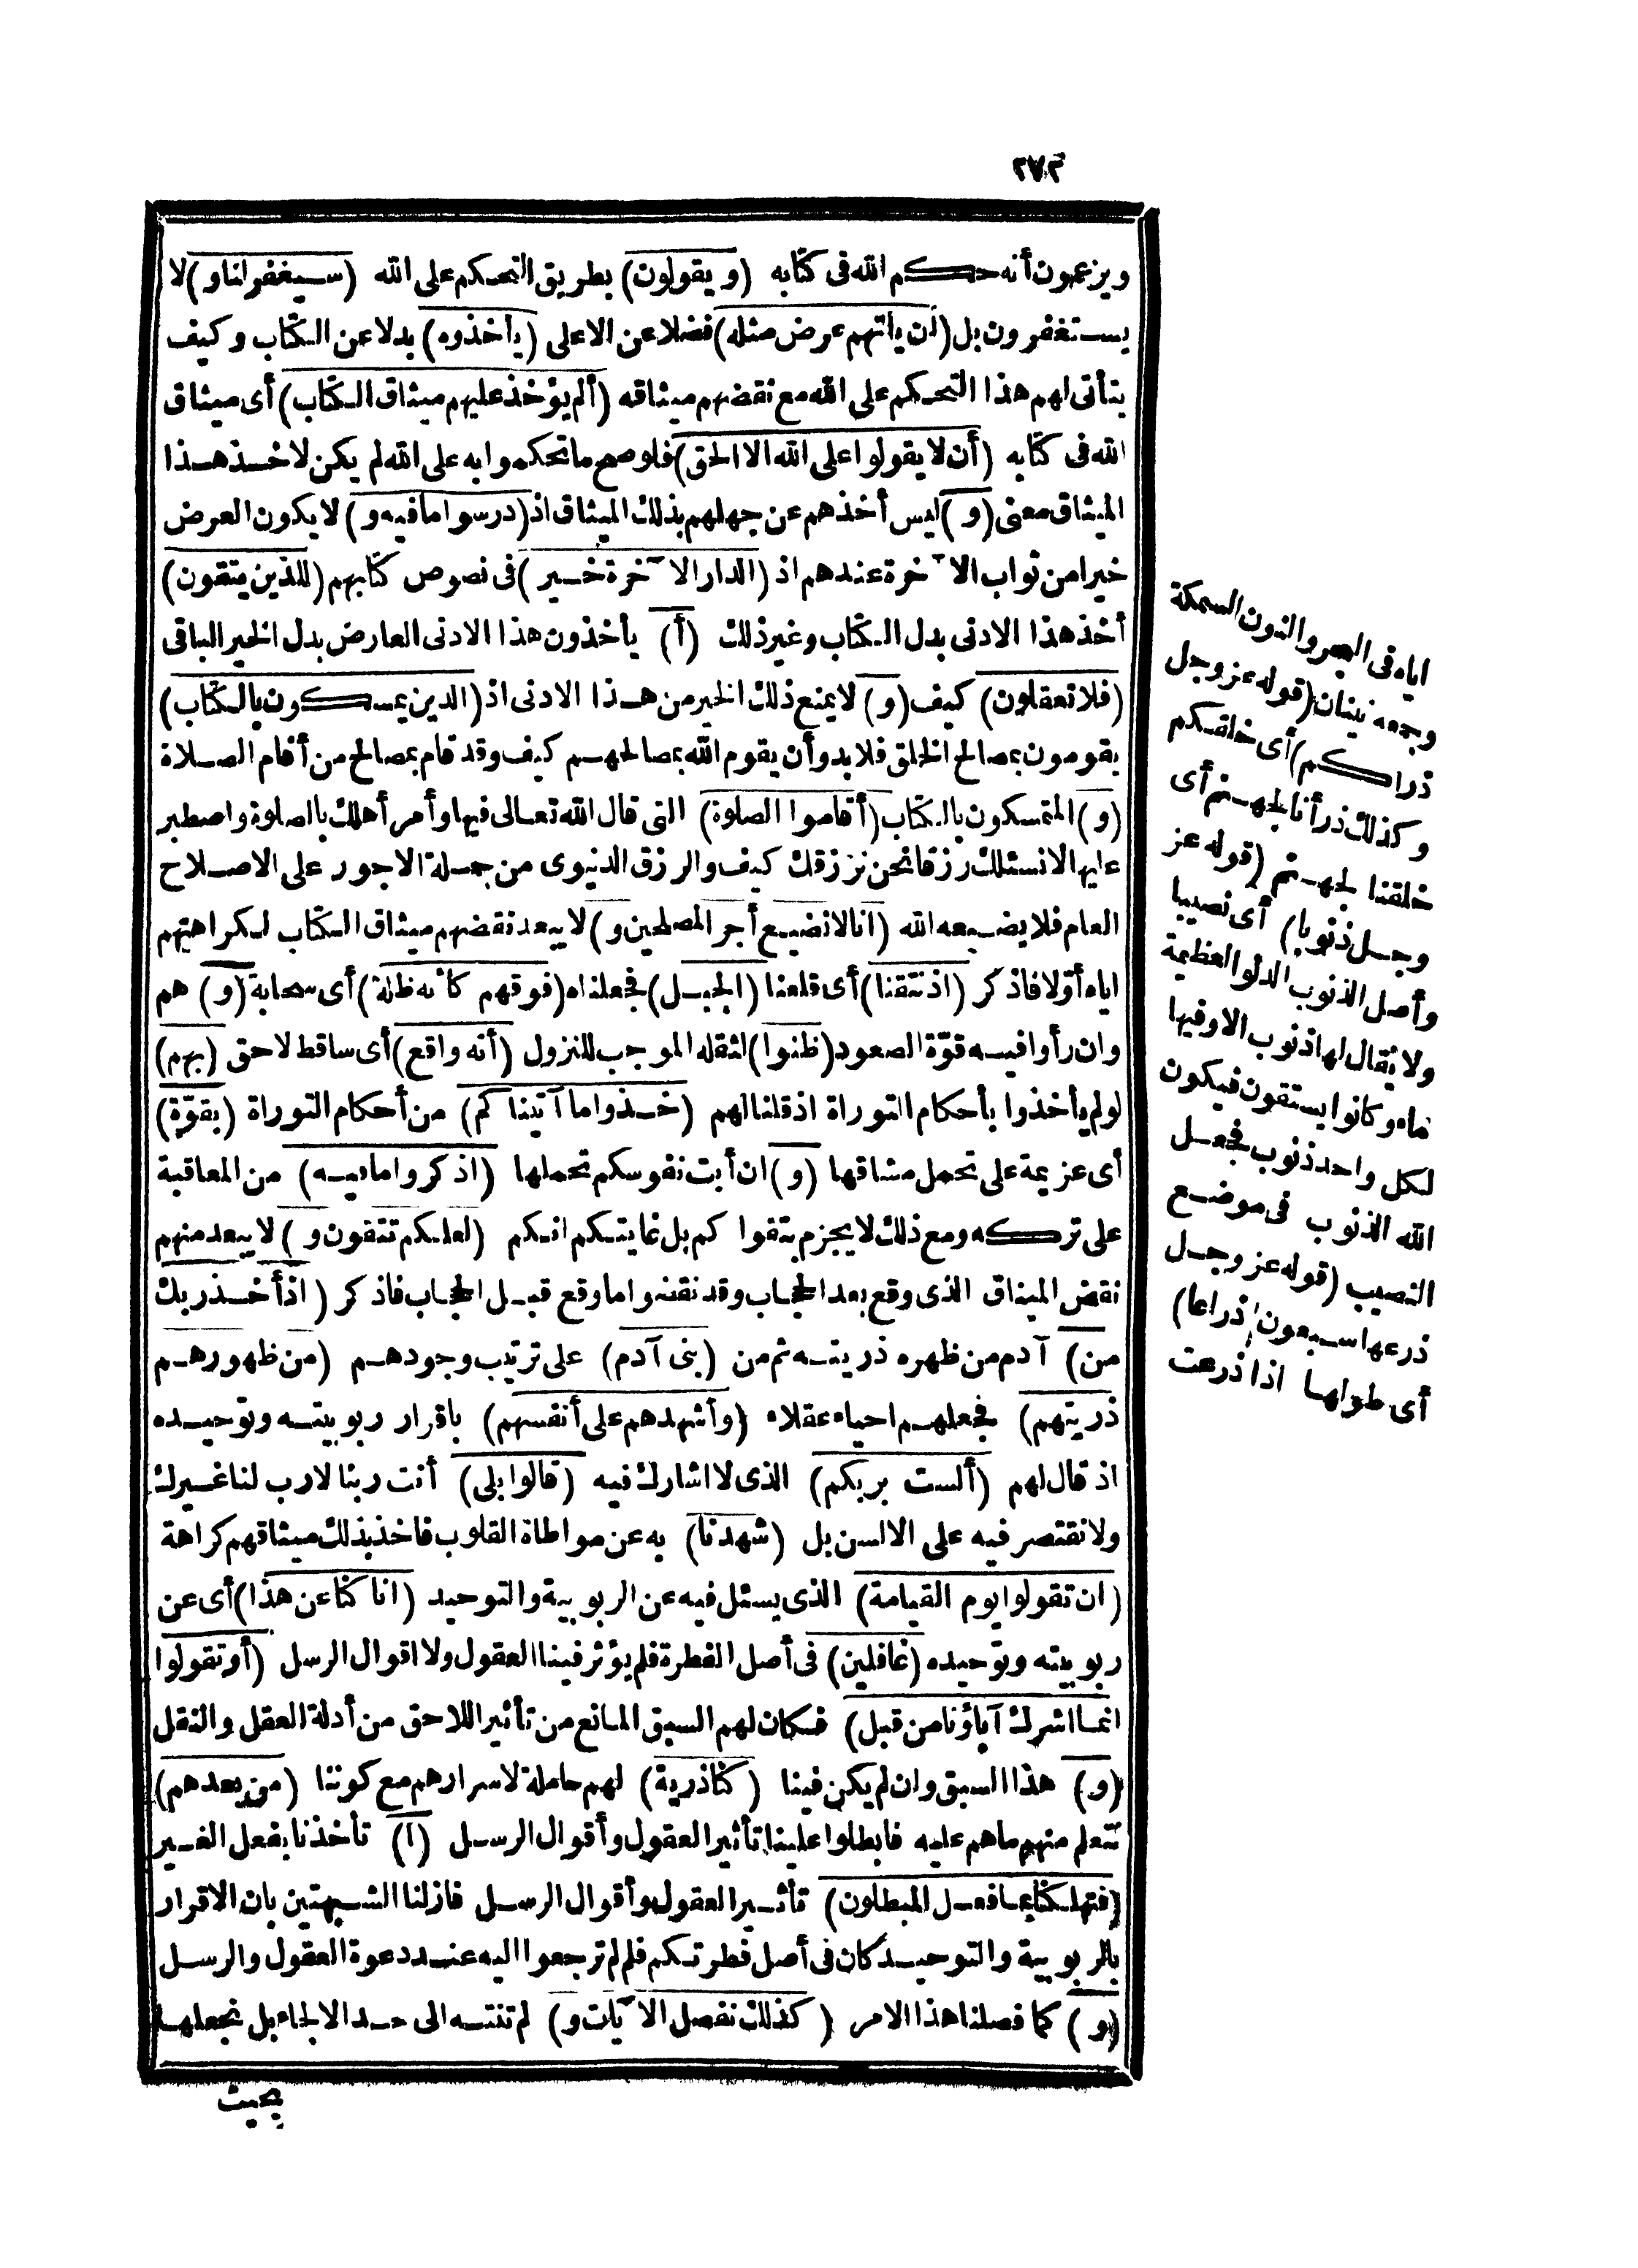 ٢٧٢
ويزعمون أنه حكم الله فى كتابه (ويقولون) بطريق التحكم على الله (سيغفر لنا و) لا
يستغفرون بل (ان يأتهم عرض مثله) فضلا عن الاعلى (يأخذوه) بدلا عن الكتاب وكيف
يتأتى لهم هذا التحكم على الله مع نقضهم ميثاقه (ألم يؤخذ عليهم ميثاق الكتاب) أى ميثاق
الله فى كتابه (أن لا يقولوا على الله الا الحق) فلو صح ما تحكموا به على الله لم يكن لاخذ هذا
الميثاق معنى (و) ليس أخذهم عن جهلهم بذلك الميثاق اذ (درسوا ما فيه و) لا يكون العرض
خيرا من ثواب الآخرة عندهم اذ (الدار الآخرة خير) فى نصوص كتابهم (للذين يتقون)
أخذ هذا الادنى بدل الكتاب وغير ذلك (أ) يأخذون هذا الادنى العارض بدل الخير الباقى
(فلا تعقلون) كيف (و) لا يمنع ذلك الخير من هذا الادنى اذ (الذين يمسكون بالكتاب)
يقومون بمصالح الخلق فلا بد وأن يقوم الله بمصالحهم كيف وقد قام بمصالح من أقام الصلاة
(و) المتمسكون بالكتاب (أقاموا الصلوة) التى قال الله تعالى فيها وأمر أهلك بالصلوة واصطبر
عليها لا نسئلك رزقا نحن نرزقك كيف والرزق الدنيوى من جملة الاجور على الاصلاح
العام فلا يضيعه الله (انا لا نضيع أجر المصلحين و) لا يبعد نقضهم ميثاق الكتاب لكراهتهم
اياه أولا فاذكر (اذ نتقنا) أى قلعنا (الجبل) فجعلناه (فوقهم كأنه ظلة) أى سحابة (و) هم
وان رأوا فيه قوّة الصعود (ظنوا) لثقله الموجب للنزول (أنه واقع) أى ساقط لاحق (بهم)
لو لم يأخذوا بأحكام التوراة اذ قلنا لهم (خذوا ما آتيناكم) من أحكام التوراة (بقوّة)
أى عزيمة على تحمل مشاقها (و) ان أبت نفوسكم تحملها (اذكروا ما فيه) من المعاقبة
على تركه ومع ذلك لا يجزم بتقواكم بل غايتكم انكم (لعلكم تتقون و) لا يبعد منهم
نقض الميثاق الذى وقع بعد الحجاب وقد نقضوا ما وقع قبل الحجاب فاذكر (اذ أخذ ربك
من) آدم من ظهره ذريته ثم من (بنى آدم) على ترتيب وجودهم (من ظهورهم
ذريتهم) فجعلهم احياء عقلاء (وأشهدهم على أنفسهم) باقرار ربوبيته وتوحيده
اذ قال لهم (ألست بربكم) الذى لا اشارك فيه (قالوا بلى) أنت ربنا لا رب لنا غيرك
ولا نقتصر فيه على الالسن بل (شهدنا) به عن مواطاة القلوب فاخذ بذلك ميثاقهم كراهة
(ان تقولوا يوم القيامة) الذى يسئل فيه عن الربوبية والتوحيد (انا كنا عن هذا) أى عن
ربوبيته وتوحيده (غافلين) فى أصل الفطرة فلم يؤثر فينا العقول ولا اقوال الرسل (أو تقولوا
انما اشرك آباؤنا من قبل) فكان لهم السبق المانع من تأثير اللاحق من أدلة العقل والنقل
(و) هذا السبق وان لم يكن فينا (كنا ذرية) لهم حاملة لاسرارهم مع كوننا (من بعدهم)
نتعلم منهم ما هم عليه فابطلوا علينا تأثير العقول وأقوال الرسل (ا) تأخذنا بفعل الغير
(فتهلكنا بما فعل المبطلون) تأثير العقول وأقوال الرسل فازلنا الشبهتين بان الاقرار
بالربوبية والتوحيد كان فى أصل فطرتكم فلم لم ترجعوا اليه عند دعوة العقول والرسل
(و) كما فصلنا هذا الامر (كذلك نفصل الآيات و) لم تنته الى حد الالجاء بل نجعلها
بحيث
اياه فى البحر والنون السمكة
وجمعه نينان (قوله عز وجل
ذراكم) أى خلقكم
وكذلك ذرأنا لجهنم أى
خلقنا لجهنم (قوله عز
وجل ذنوبا) أى نصيبا
وأصل الذنوب الدلو العظيمة
ولا يقال لها ذنوب الا وفيها
ماء وكانوا يستقون فيكون
لكل واحد ذنوب فجعل
الله الذنوب فى موضع
النصيب (قوله عز وجل
ذرعها سبعون ذراعا)
أى طولها اذا ذرعت